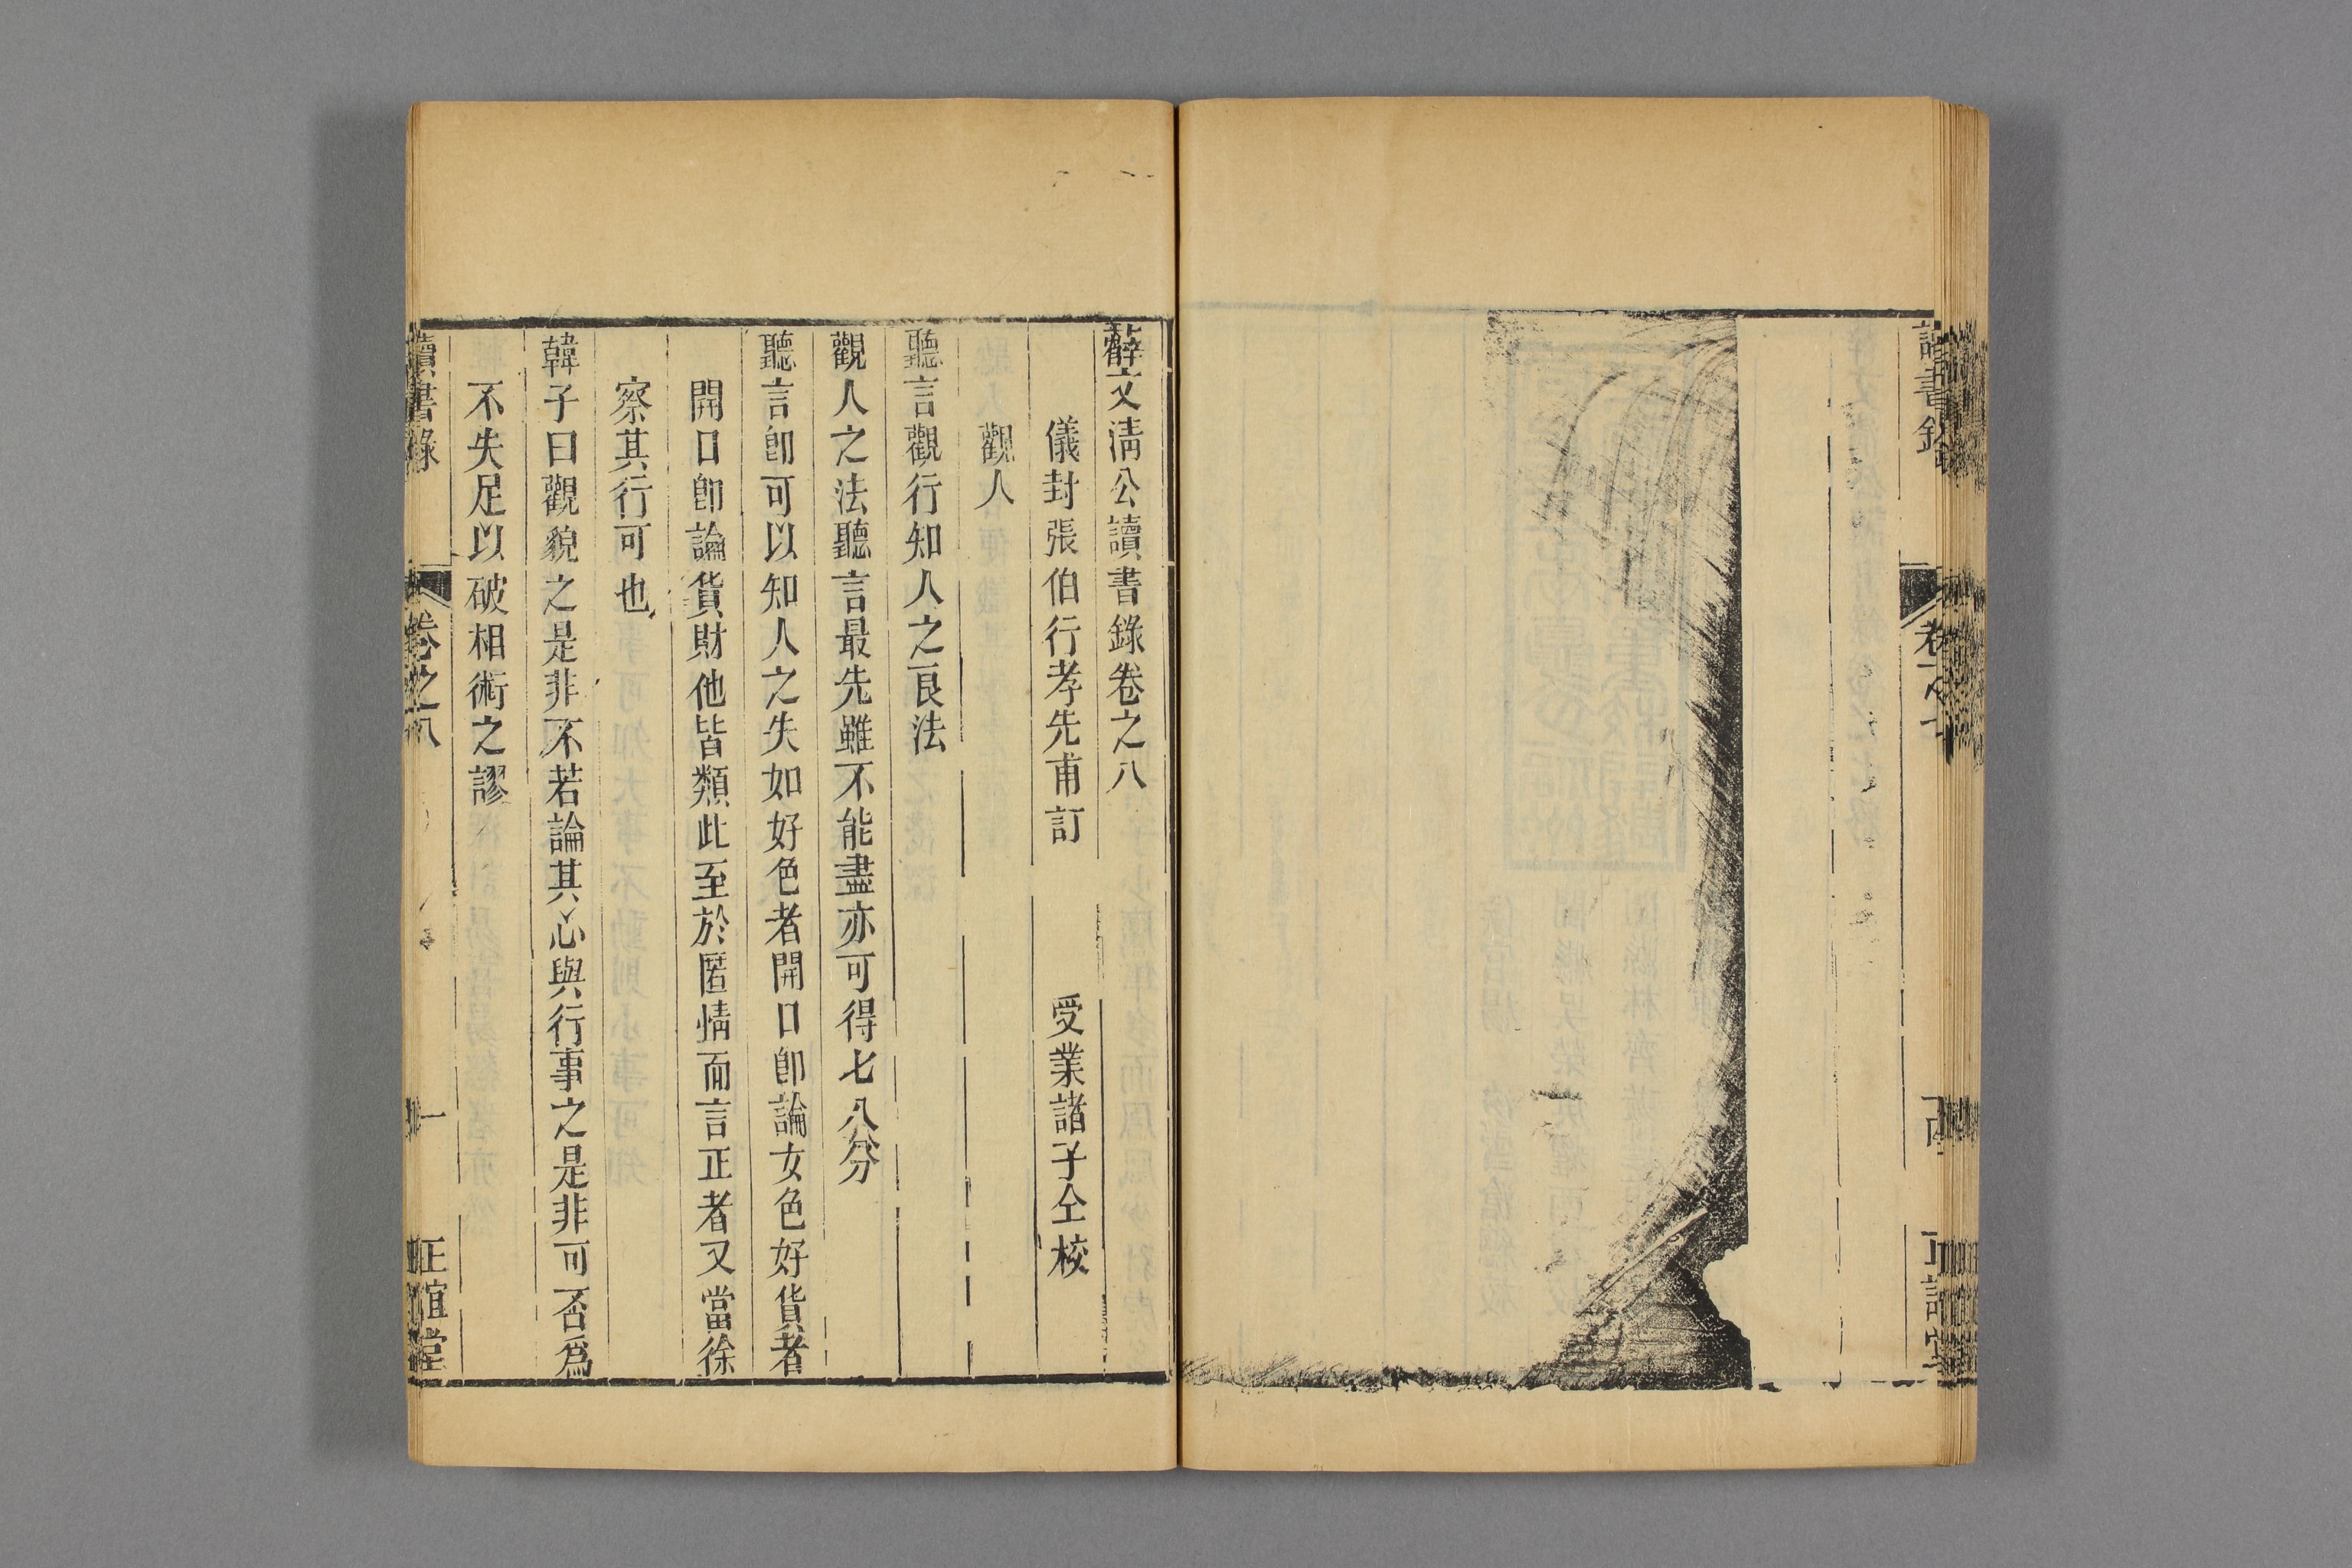 薛文淸公讀書錄卷之八
儀封張伯行孝先甫訂 受業諸子仝校
觀人
聽言觀行知人之良法
觀人之法聽言最先雖不能盡亦可得七八分
聽言卽可以知人之失如好色者開口卽論女色好貨者
開口卽論貨財他皆類此至於匿情而言正者又當徐
察其行可也
韓子曰觀貌之是非不若論其心與行事之是非可否爲
不失足以破相術之謬
讀書錄 卷之八 一 正誼堂